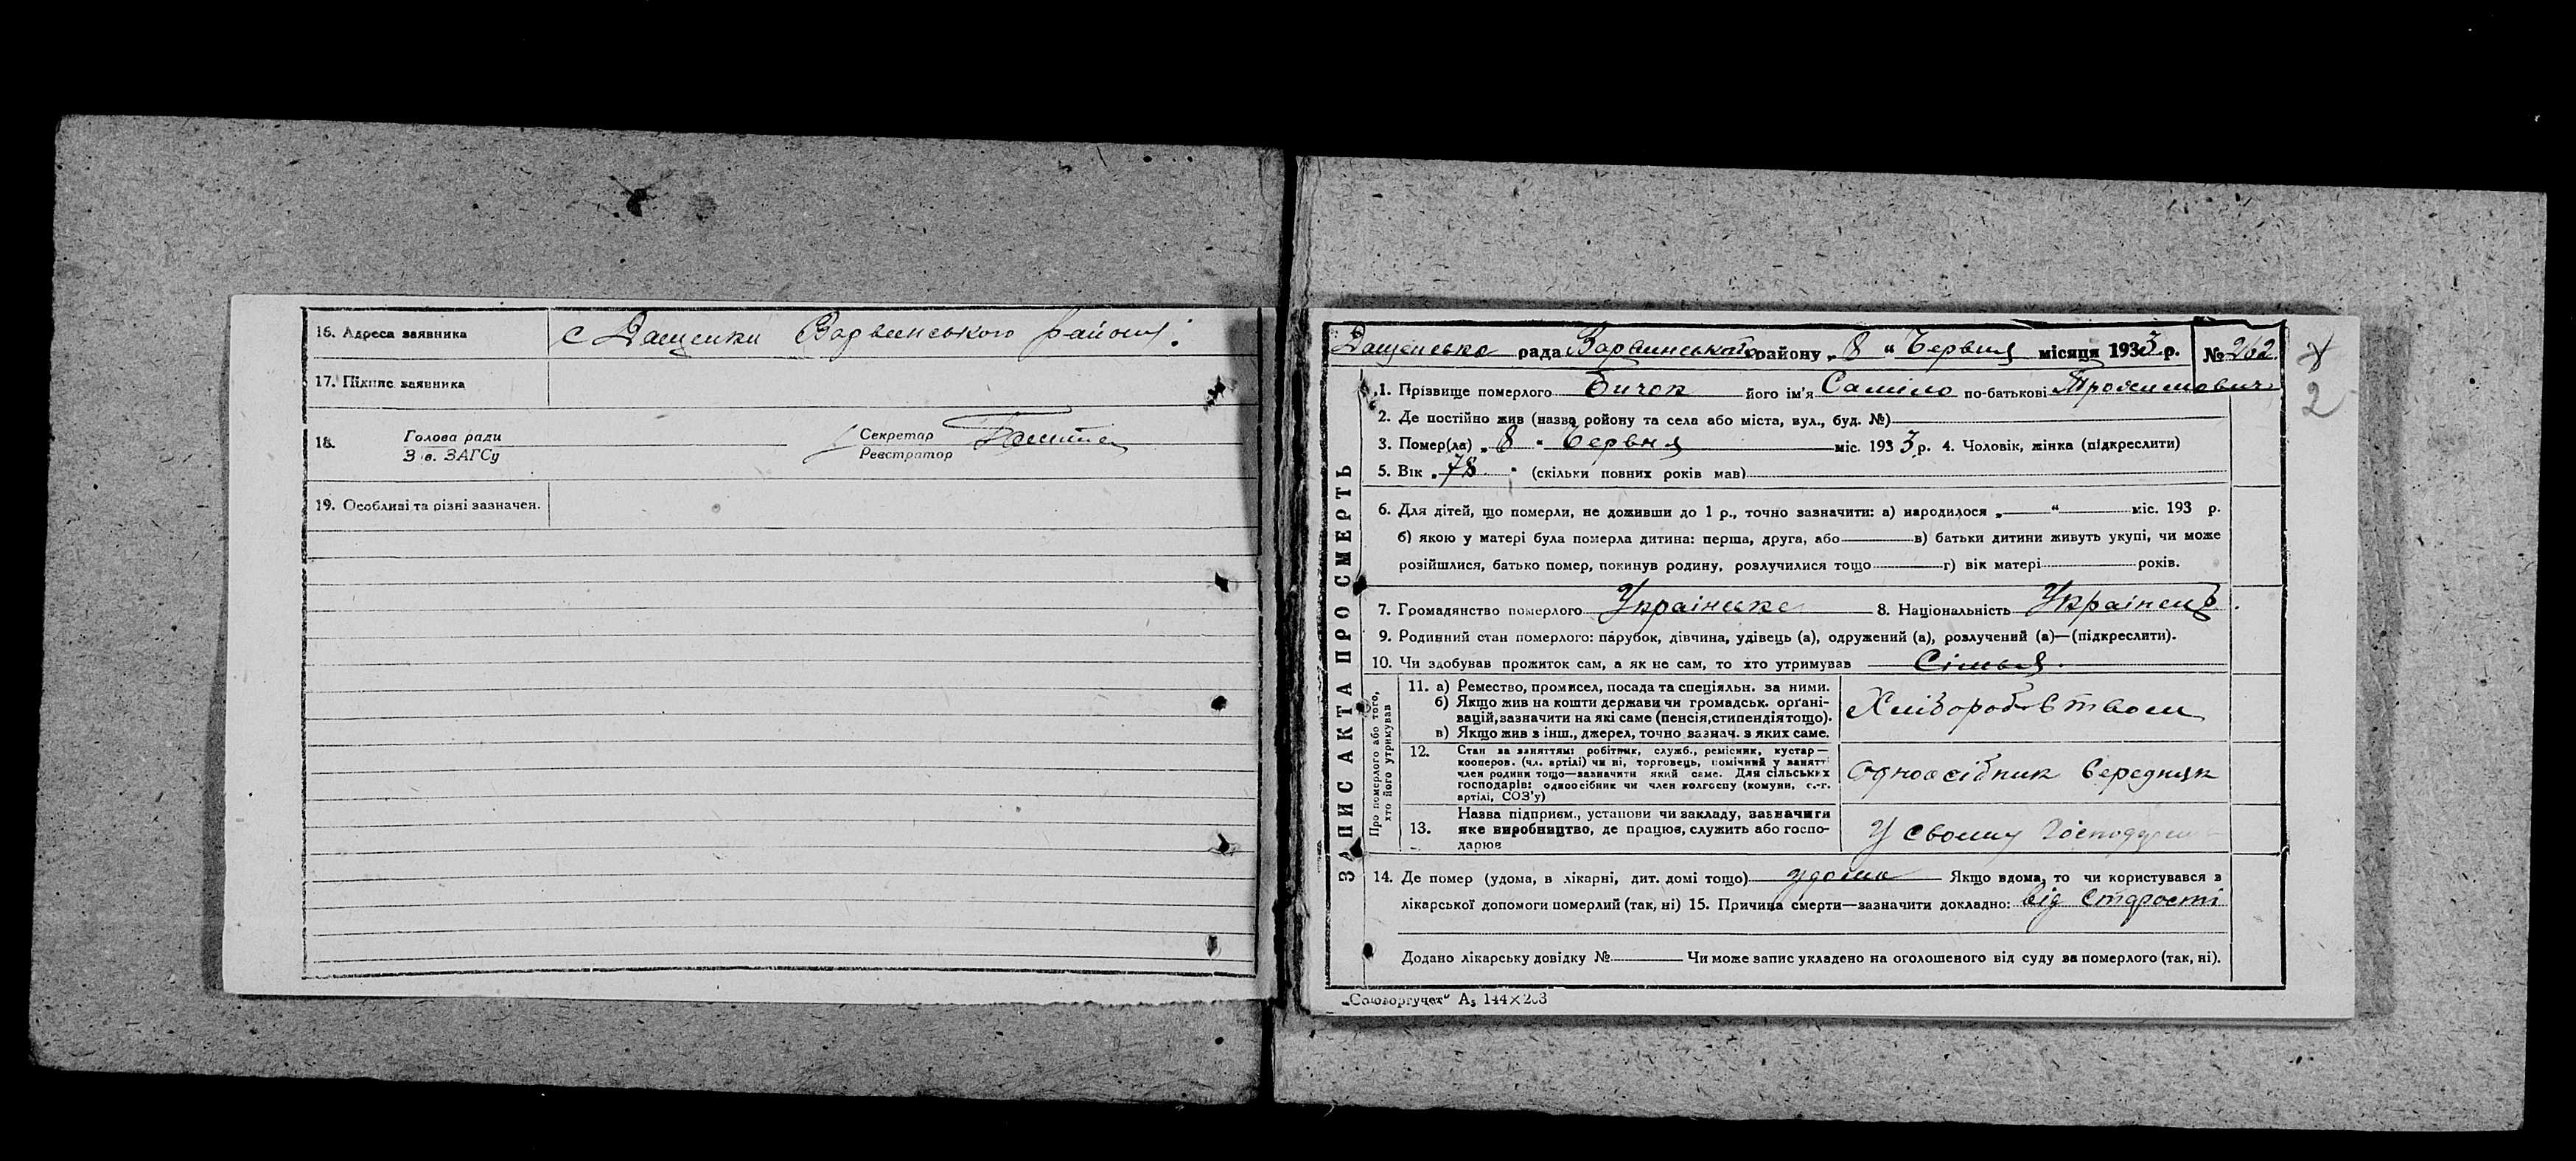 16. Адреса заявника с Дащенки Варвинського району.
17. Підпис заявника
18. Голова ради Секретар
З в. ЗАГСу Реєстратор
19. Особливі та різні зазначен.
Дащенська рада Варвинського району „ 8 “ Червня місяця 1933 р. № 262
2
ЗАПИС АКТА ПРО СМЕРТЬ
1. Прізвище померлого Бичок його ім'я Саміло по-батькові Трохимович
2. Де постійно жив (назва ройону та села або міста, вул., буд. №)
3. Помер(ла) „ 8 “ Червня міс. 1933 р. 4. Чоловік, жінка (підкреслити)
5. Вік „ 78 “ (скільки повних років мав)
6. Для дітей, що померли, не доживши до 1 р., точно зазначити: а) народилося „ “ міс. 193 р.
б) якою у матері була померла дитина: перша, друга, або в) батьки дитини живуть укупі, чи може
розійшлися, батько помер, покинув родину, розлучилися тощо г) вік матері років.
7. Громадянство померлого Українське 8. Національність Українець
9. Родинний стан померлого: парубок, дівчина, удівець (а), одружений (а), розлучений (а)—(підкреслити).
10. Чи здобував прожиток сам, а як не сам, то хто утримував Сімья.
Про померлого або того, хто його утримував
11. а) Ремество, промисел, посада та спеціяльн. за ними.
б) Якщо жив на кошти держави чи громадськ. орґані-
вацій, зазначити на які саме (пенсія, стипендія тощо).
в) Якщо жив з інш., джерел, точно зазнач. з яких саме.
Хліборобством
12. Стан за заняттям: робітник, служб., ремісник, кустар—
кооперов. (чл. артілі) чи ні, торговець, помічний у занятт
член родини тощо—зазначити який саме. Для сільських
господарів: одноосібник чи член колгоспу (комуни, с.-г.
артілі, СОЗ'у)
Одноосібник Середняк
13. Назва підприєм., установи чи закладу, зазначити
яке виробництво, де працює, служить або госпо-
дарює
У своему
14. Де помер (удома, в лікарні, дит. домі тощо) удома Якщо вдома, то чи користувався з
лікарської допомоги померлий (так, ні) 15. Причина смерти—зазначити докладно: від старости
Додано лікарську довідку № Чи може запис укладено на оголошеного від суду за померлого (так, ні).
„Союзоргучет“ А₅ 144×203